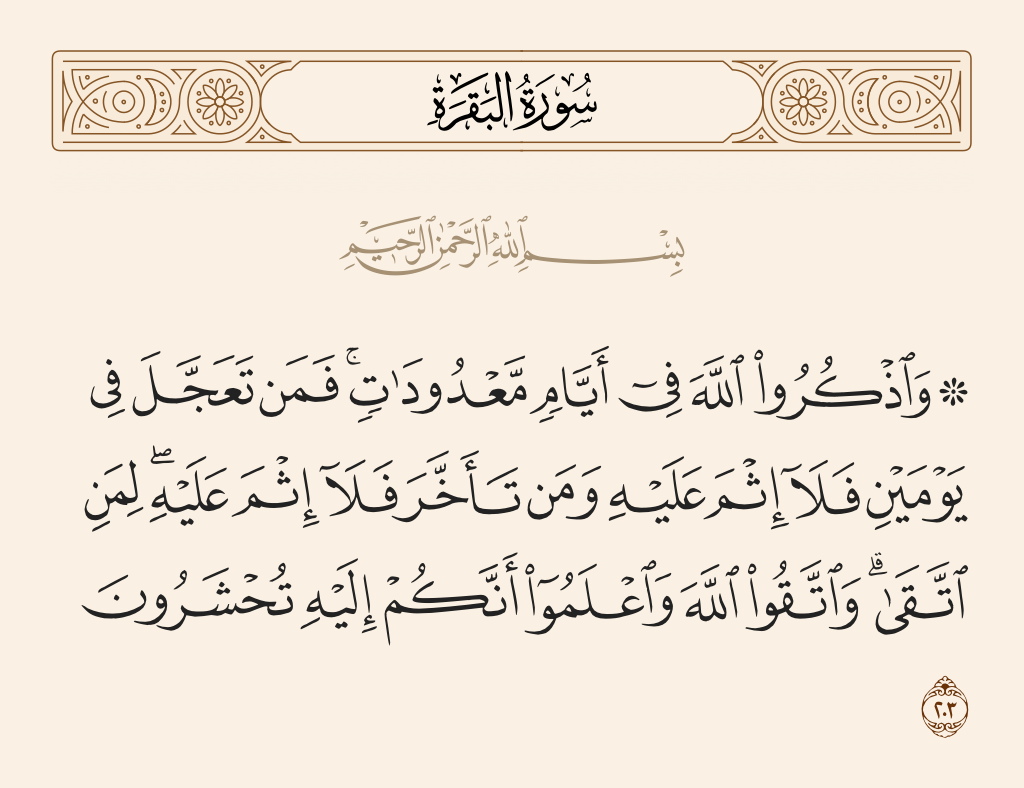 سُورَةُ البَقَرَةِ
بِسْمِ ٱللَّهِ ٱلرَّحْمَٰنِ ٱلرَّحِيمِ
۞ وَٱذْكُرُوا۟ ٱللَّهَ فِىٓ أَيَّامٍ مَّعْدُودَٰتٍ ۚ فَمَن تَعَجَّلَ فِى
يَوْمَيْنِ فَلَآ إِثْمَ عَلَيْهِ وَمَن تَأَخَّرَ فَلَآ إِثْمَ عَلَيْهِ ۖ لِمَنِ
ٱتَّقَىٰ ۗ وَٱتَّقُوا۟ ٱللَّهَ وَٱعْلَمُوٓا۟ أَنَّكُمْ إِلَيْهِ تُحْشَرُونَ
٢٠٣